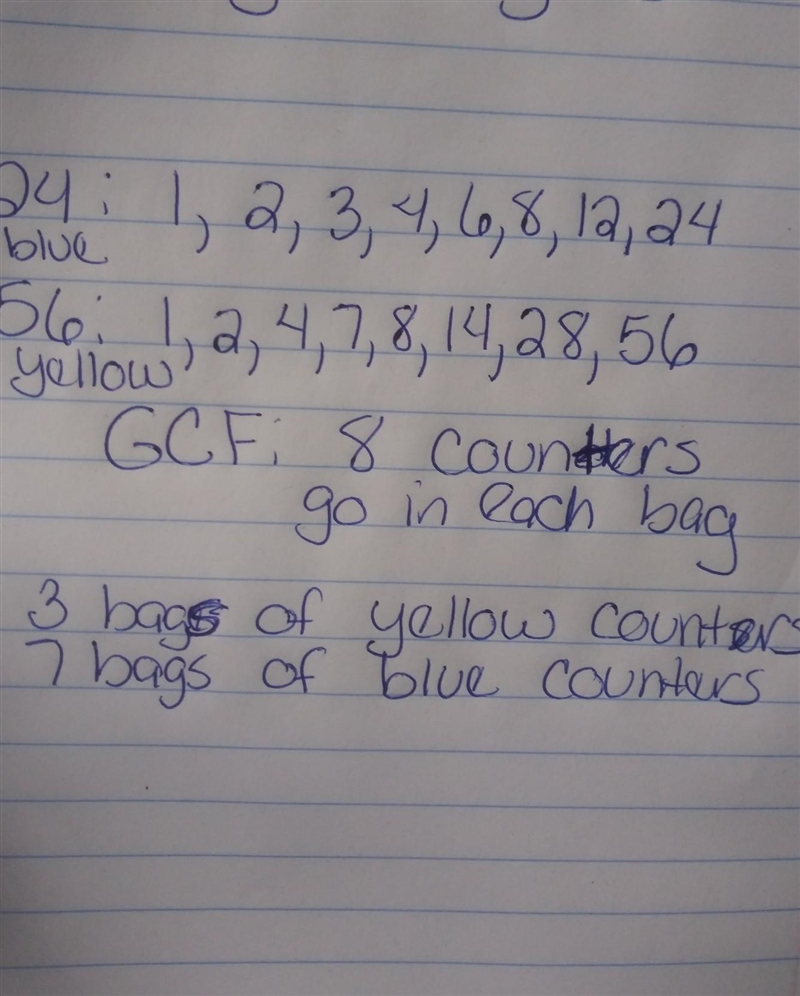 24: 1, 2, 3, 4, 6, 8, 12, 24
blue
56: 1, 2, 4, 7, 8, 14, 28, 56
yellow
GCF: 8 counters
go in each bag
3 bags of yellow counters
7 bags of blue counters